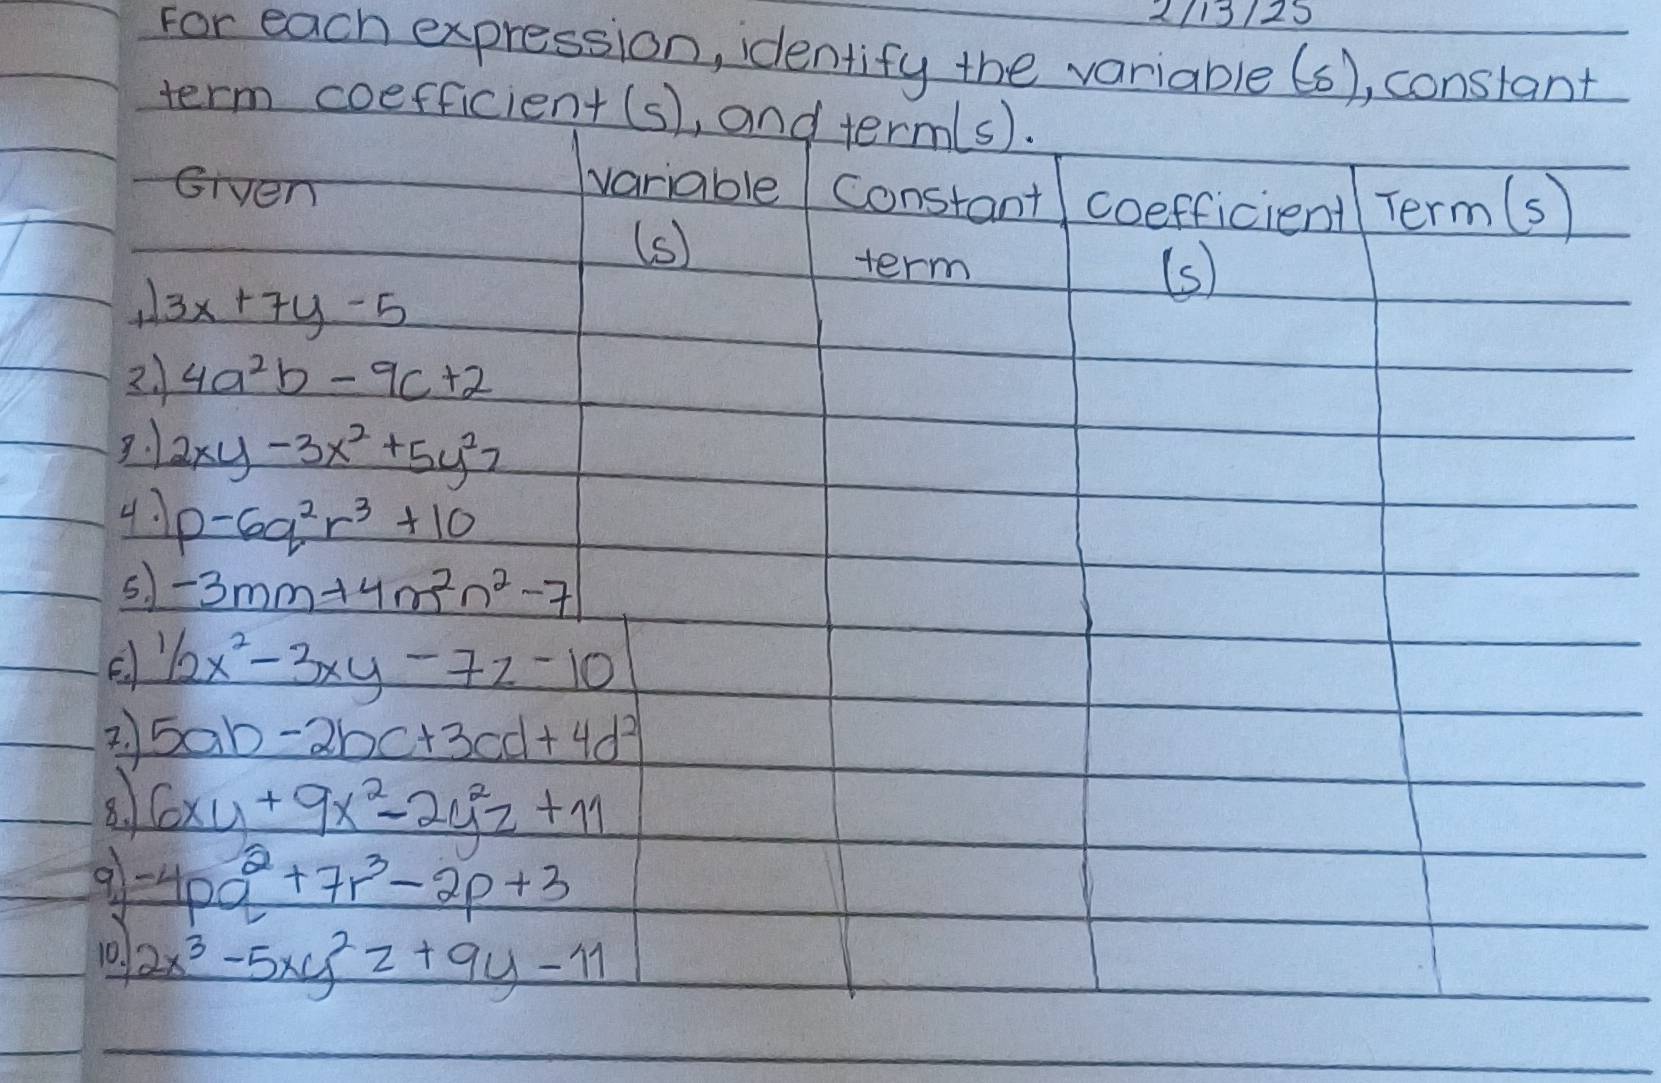 2/13/25
For each expression, identify the variable (s), constant
term coefficient (s), and term(s).
Given variable Constant coefficient Term (s)
(s) term (s)
1.) 3x + 7y - 5
2.) 4a²b - 9c + 2
3.) 2xy - 3x² + 5y²z
4.) p - 6q²r³ + 10
5.) -3mm + 4m²n² - 7
6.) 1/2x² - 3xy - 7z - 10
7.) 5ab - 2bc + 3cd + 4d²
8.) 6xy + 9x² - 2y²z + 11
9.) -4pq² + 7r³ - 2p + 3
10.) 2x³ - 5xy²z + 9y - 11